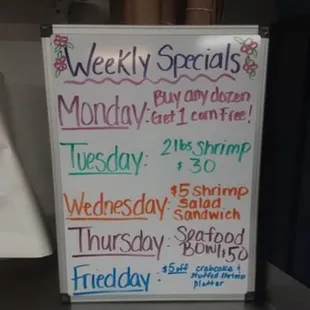 Weekly Specials
Monday: Buy any dozen
Get 1 corn Free!
Tuesday: 2lbs shrimp
$30
Wednesday: $5 shrimp
Salad
Sandwich
Thursday: Seafood
Bowl $50
Friedday: $5 off crabcake &
stuffed shrimp
platter